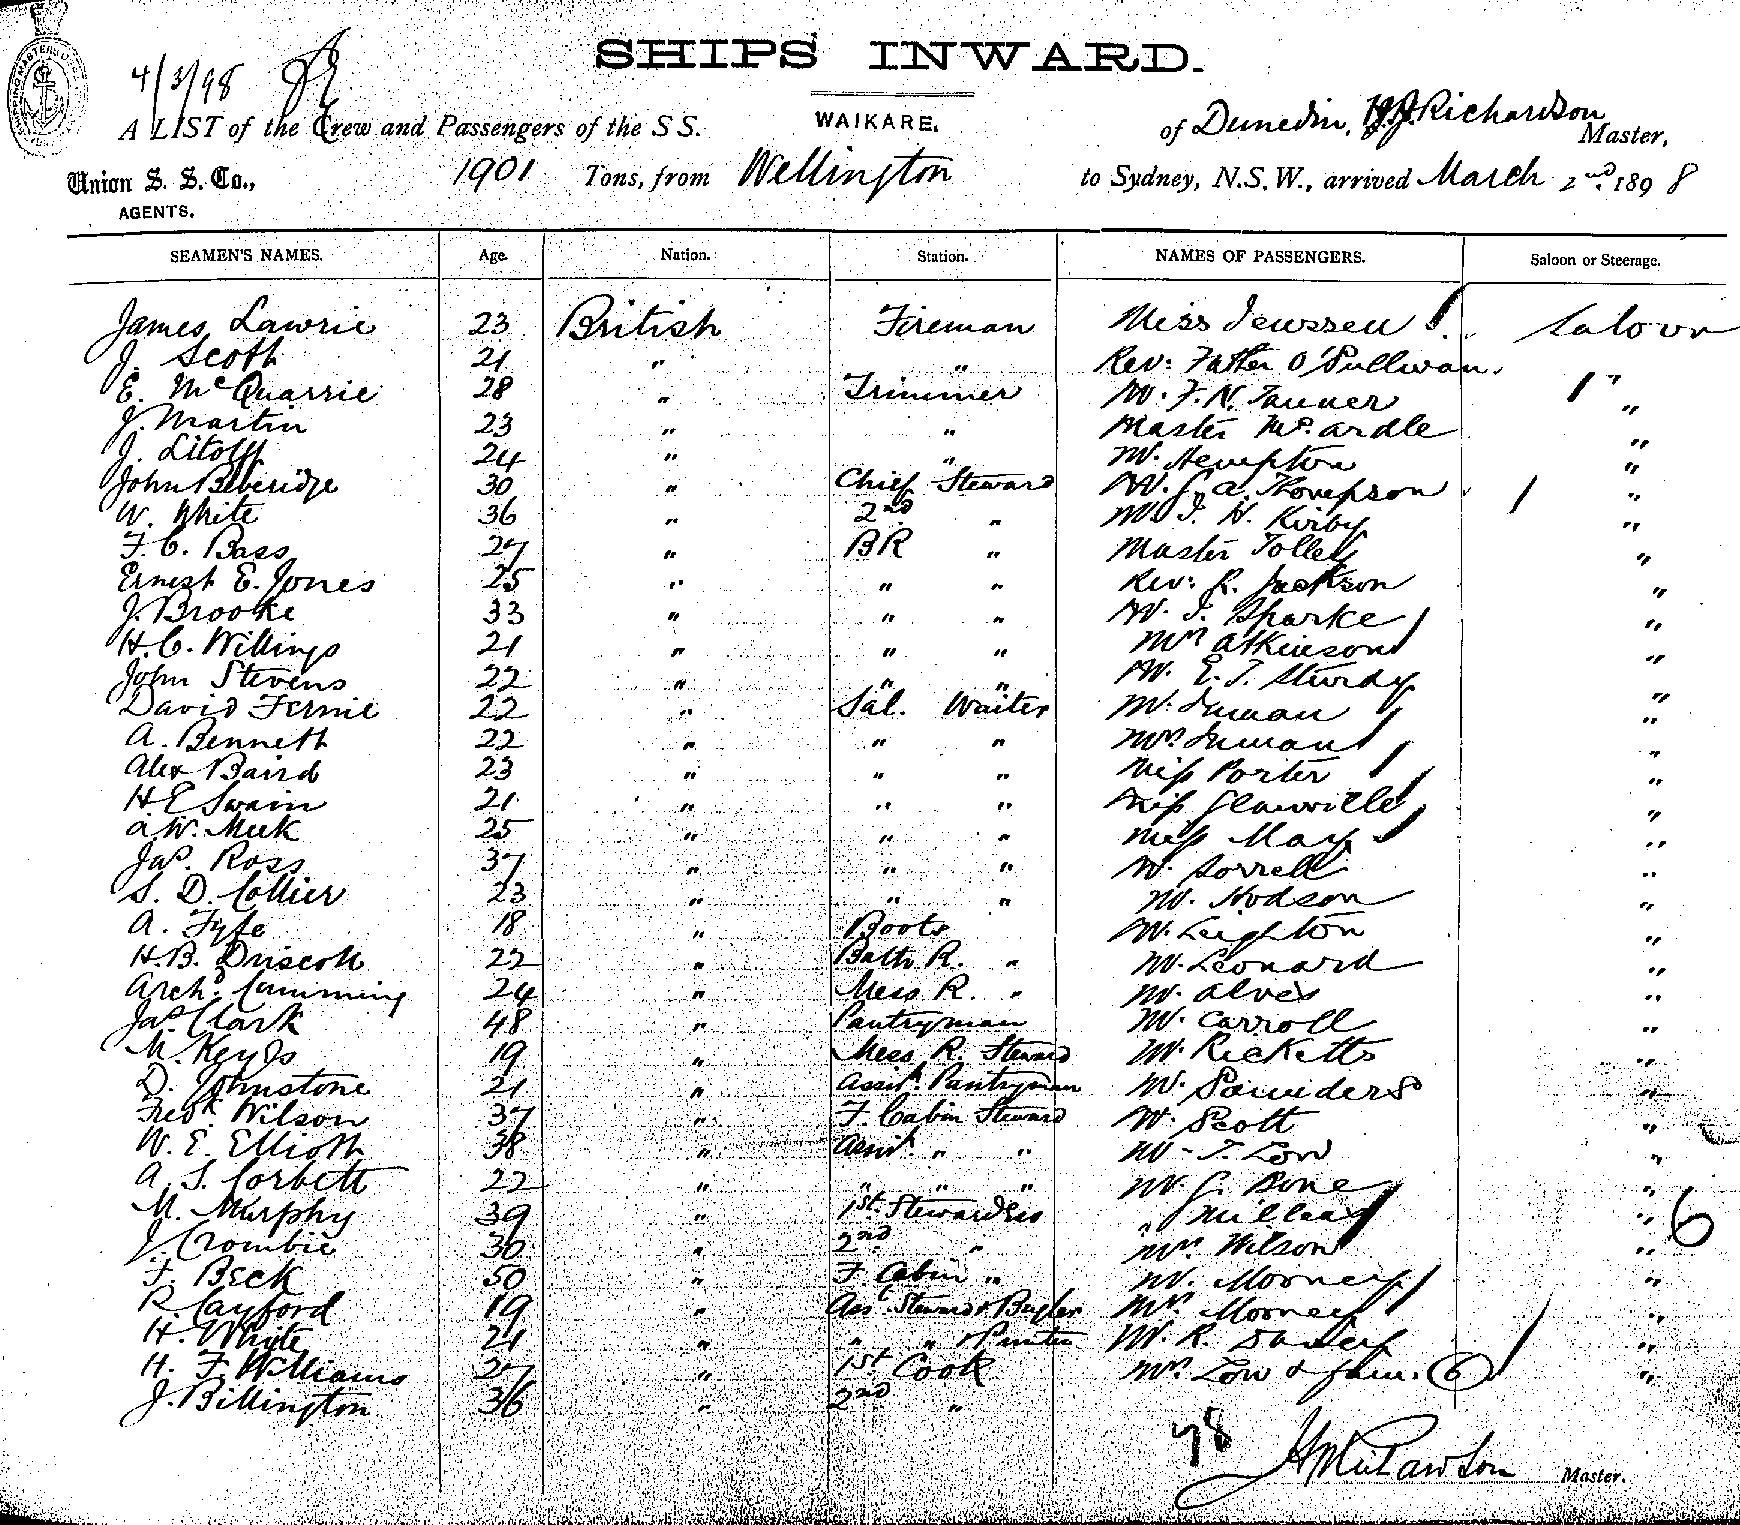 SHIPS INWARD.
4/3/98
A LIST of the Crew and Passengers of the S S. WAIKARE. of Dunedin, Richardson Master,
Union S. S. Co., 1901 Tons, from Wellington to Sydney, N.S.W., arrived March 2nd 1898
AGENTS.
SEAMEN'S NAMES. Age. Nation. Station. NAMES OF PASSENGERS. Saloon or Steerage.
James Lawrie 23 British Fireman Miss Saloon
J. Scott 21 " " Rev: Father O'Sullivan "
E. McQuarrie 28 " Trimmer Mr. F. N. Tanner "
J. Martin 23 " " Master McArdle "
J. 24 " " Mr. Hempton "
John Beveridge 30 " Chief Steward Mr. A. Thompson "
W. White 36 " 2nd " H. Kirby "
F. C. Bass 27 " BR " Master Tolley "
Ernest E. Jones 25 " " " Rev: R. Jackson "
J. Brooke 33 " " " Mr. Sparke "
H. C. Willings 21 " " " Mrs Atkinson "
John Stevens 22 " " " Mr. E. T. Sturdy "
David Fernie 22 " Sal. Waiter Mr. Inman "
A. Bennett 22 " " " Mrs. Inman "
Alex Baird 23 " " " Miss Porter "
H E Swain 21 " " " Miss Glanville "
A. W. Meek 25 " " " Miss May "
Jas. Ross 37 " " " Mr. Sorrell "
S. D. Collier 23 " " " Mr. Hodson "
A. Fyfe 18 " Boots Mr. Leighton "
H. B. Driscoll 22 " Bath R. " Mr. Leonard "
Archd. Cumming 24 " Mess R. " Mr. Alves "
Jas. Clark 48 " Pantryman Mr. Carroll "
M. 19 " Mess R. Steward Mr. Ricketts "
D. Johnstone 21 " Assist. Pantryman Mr. Saunders "
Fredk. Wilson 37 " F. Cabin Steward Mr. Scott "
W. E. Elliott 38 " Assist. " " Mr. T. Low "
A. S. Corbett 22 " " " " Mr. G. Bone "
M. Murphy 39 " 1st Stewardess " "
J. Crombie 30 " 2nd " Mrs Wilson "
F. Beck 50 " F. Cabin " Mr. Mooney "
R Cayford 19 " Ass. Steward & Bugler Mrs. Mooney "
H. Whyte 21 " " " & Printer Mr. R. "
H. F. Williams 27 " 1st Cook Mrs. Low & fam. (6) "
J. Billington 36 " 2nd "
6
78
Master.